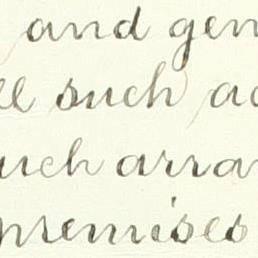 and gen
ll such ac
uch arra
premises